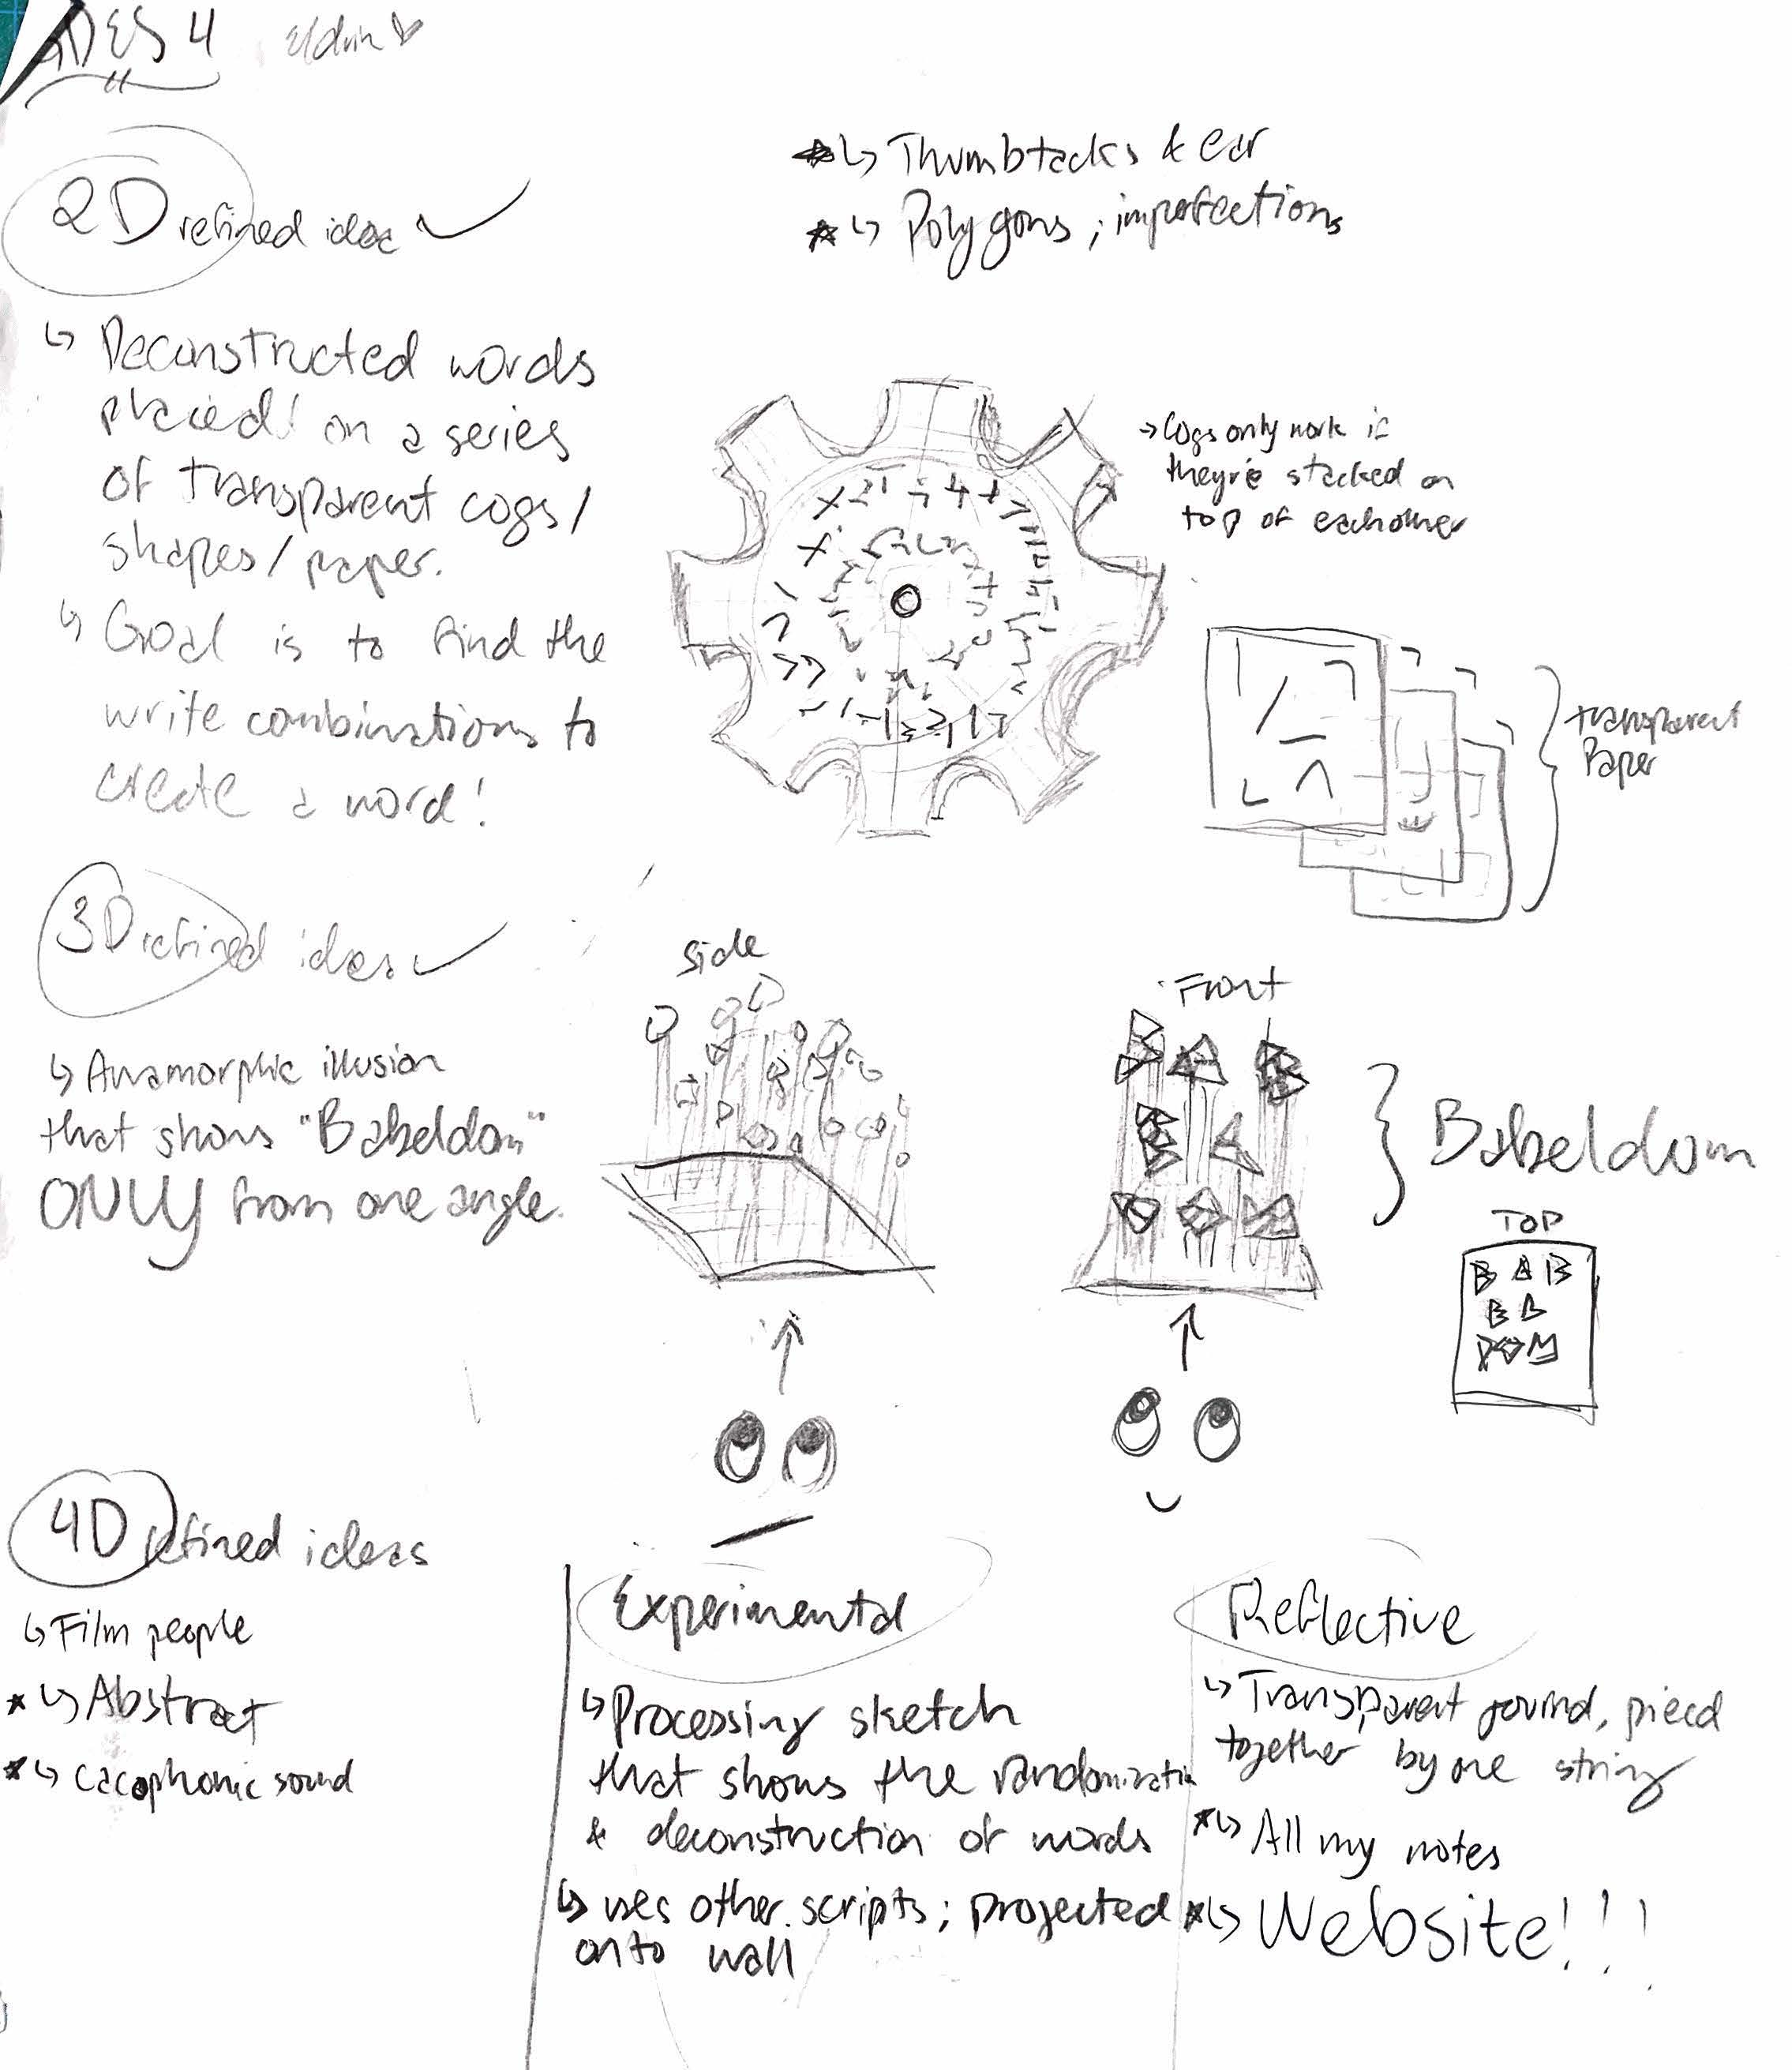 DES 4
2D refined idea
↳ Thumbtacks & ear
↳ Polygons ; imperfections
↳ Deconstructed words
placed on a series
of transparent cogs/
shapes/paper.
↳ Goal is to find the
write combinations to
create a word!
→ Cogs only work if
they're stacked on
top of eachother
transparent
Paper
3D refined ideas
↳ Anamorphic illusion
that shows "Babeldom"
ONLY from one angle.
Side
Front
Babeldom
TOP
BAB
EL
DOM
4D refined ideas
↳ Film people
↳ Abstract
↳ Cacophonic sound
Experimental
↳ Processing sketch
that shows the randomizatin
& deconstruction of words
↳ uses other scripts; projected
onto wall
Reflective
↳ Transparent
together by one string
↳ All my notes
↳ Website!!!